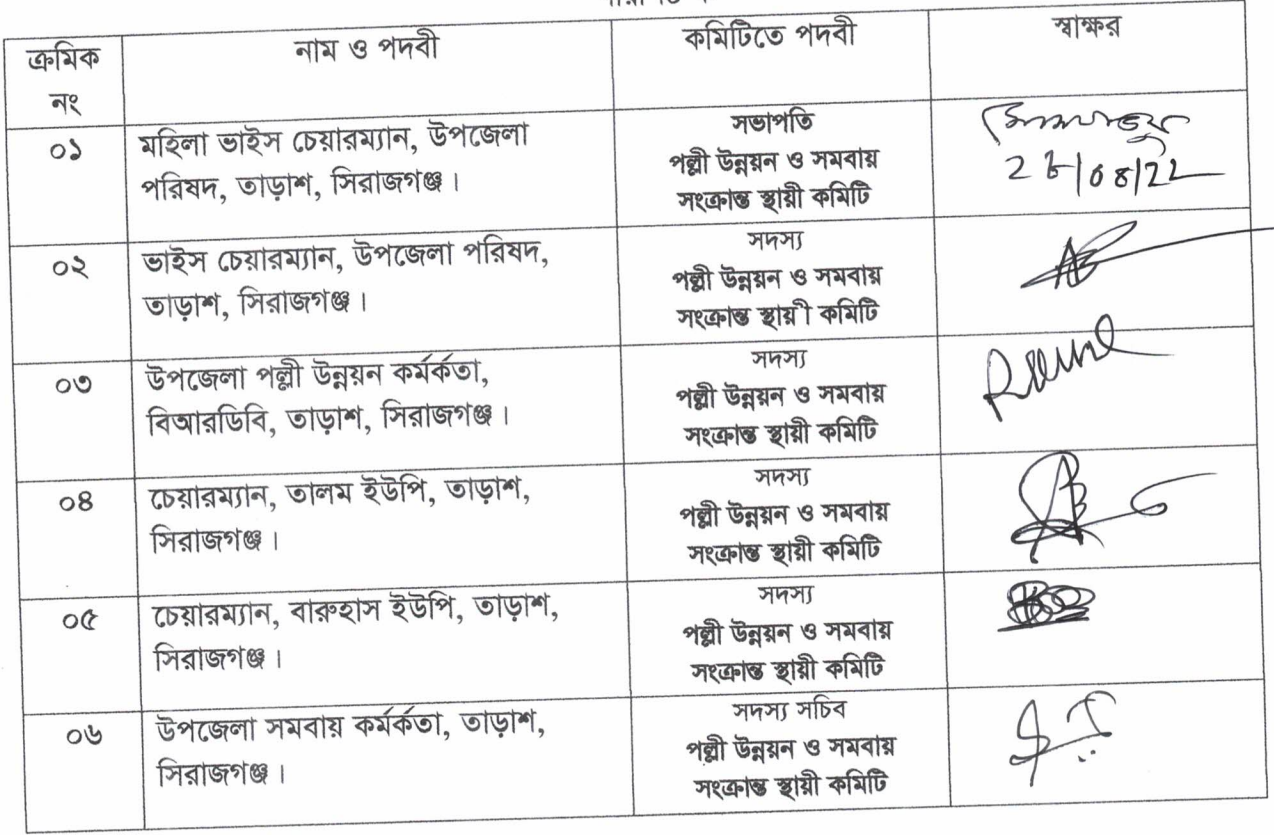 ক্রমিক নং নাম ও পদবী কমিটিতে পদবী স্বাক্ষর
০১ মহিলা ভাইস চেয়ারম্যান, উপজেলা
পরিষদ, তাড়াশ, সিরাজগঞ্জ।
সভাপতি
পল্লী উন্নয়ন ও সমবায়
সংক্রান্ত স্থায়ী কমিটি
০২ ভাইস চেয়ারম্যান, উপজেলা পরিষদ,
তাড়াশ, সিরাজগঞ্জ।
সদস্য
পল্লী উন্নয়ন ও সমবায়
সংক্রান্ত স্থায়ী কমিটি
০৩ উপজেলা পল্লী উন্নয়ন কর্মর্কতা,
বিআরডিবি, তাড়াশ, সিরাজগঞ্জ।
সদস্য
পল্লী উন্নয়ন ও সমবায়
সংক্রান্ত স্থায়ী কমিটি
০৪ চেয়ারম্যান, তালম ইউপি, তাড়াশ,
সিরাজগঞ্জ।
সদস্য
পল্লী উন্নয়ন ও সমবায়
সংক্রান্ত স্থায়ী কমিটি
০৫ চেয়ারম্যান, বারুহাস ইউপি, তাড়াশ,
সিরাজগঞ্জ।
সদস্য
পল্লী উন্নয়ন ও সমবায়
সংক্রান্ত স্থায়ী কমিটি
০৬ উপজেলা সমবায় কর্মর্কতা, তাড়াশ,
সিরাজগঞ্জ।
সদস্য সচিব
পল্লী উন্নয়ন ও সমবায়
সংক্রান্ত স্থায়ী কমিটি